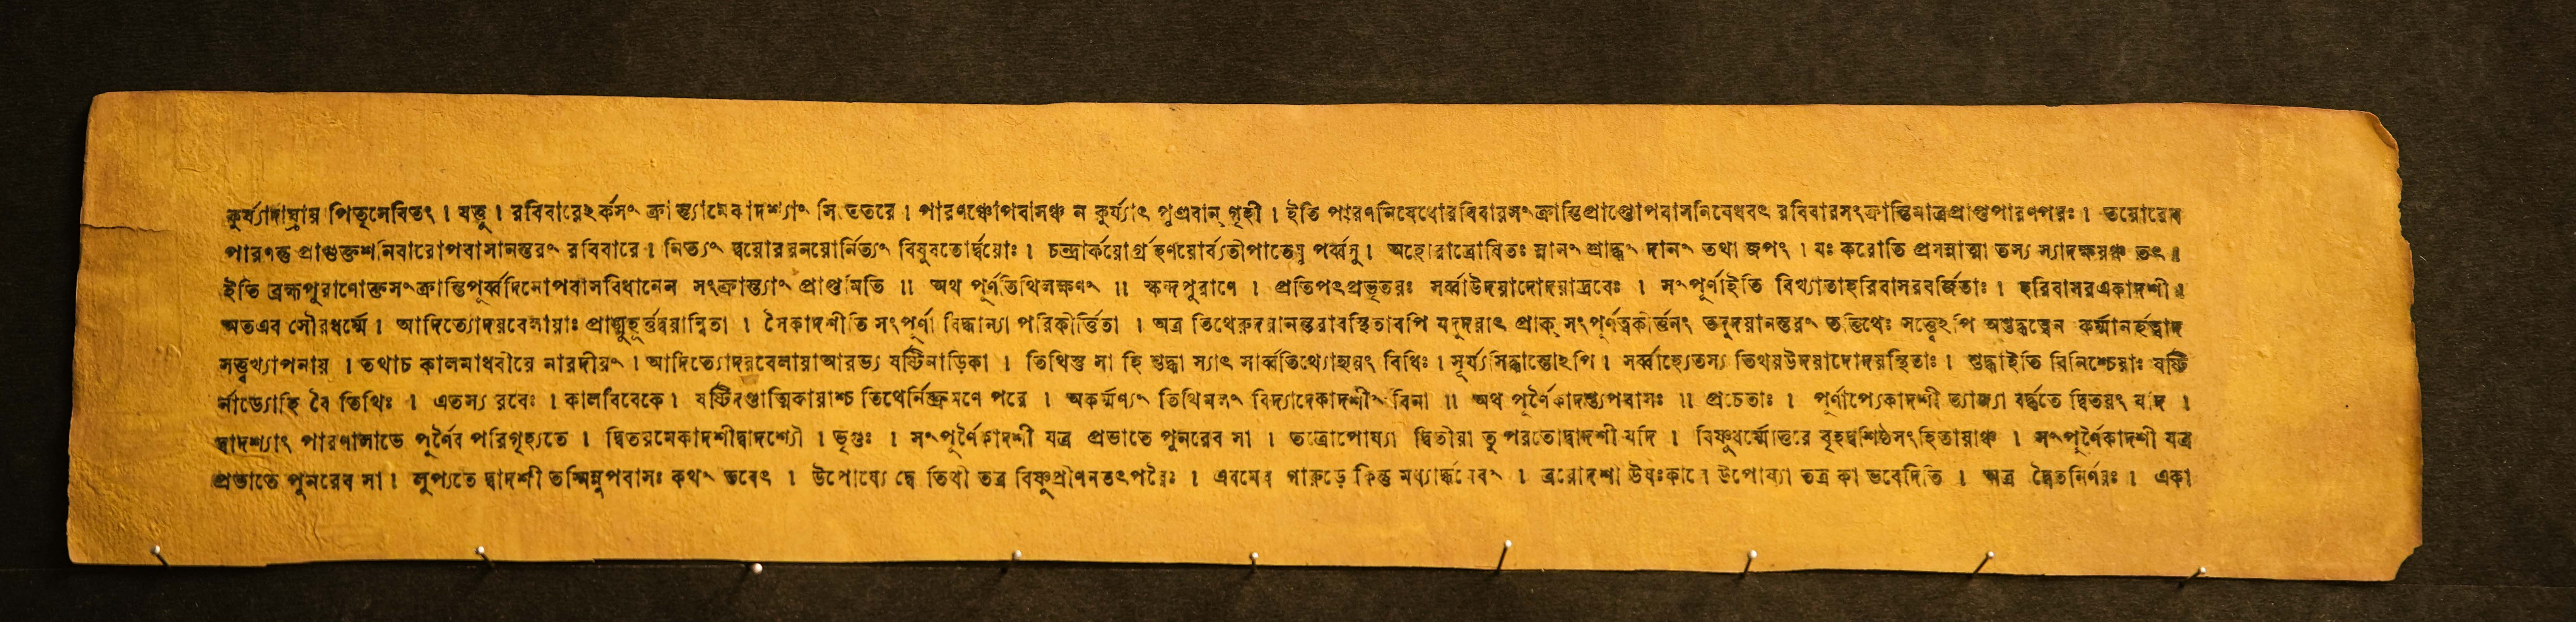 কুর্য্যাদাত্রায় পিতৃসেবিতং । যত্তু । রবিবারেঽর্কসংক্রান্ত্যামেকাদশ্যাং সিতেতরে । পারণঞ্চোপবাসঞ্চ ন কুর্য্যাৎ পুত্রবান্ গৃহী । ইতি পারণনিষেধোরবিবারসংক্রান্তিপ্রাপ্তোপবাসনিষেধবৎ রবিবারসংক্রান্তিমাত্রপ্রাপ্তপারণপরঃ । তয়োরেব
পারণন্তু প্রাগুক্তশনিবারোপবাসানন্তরং রবিবারে । নিত্যং দ্বয়োরয়নয়োর্নিত্যং বিষুবতোর্দ্বয়োঃ । চন্দ্রার্কয়োর্গ্রহণয়োর্ব্যতীপাতেষু পর্ব্বসু । অহোরাত্রোষিতঃ স্নানং শ্রাদ্ধং দানং তথা জপং । যঃ করোতি প্রসন্নাত্মা তস্য স্যাদক্ষয়ঞ্চ তৎ ॥
ইতি ব্রহ্মপুরাণোক্তসংক্রান্তিপূর্ব্বদিনোপবাসবিধানেন সংক্রান্ত্যাং প্রাপ্তমিতি ॥ অথ পূর্ণতিথিলক্ষণং ॥ স্কন্দপুরাণে । প্রতিপৎপ্রভৃতয়ঃ সর্ব্বাউদয়াদোদয়াদ্রবেঃ । সংপূর্ণাইতি বিখ্যাতাহরিবাসরবর্জিতাঃ । হরিবাসরএকাদশী ॥
অতএব সৌরধর্ম্মে । আদিত্যোদয়বেলায়াঃ প্রাঙ্মুহূর্ত্তদ্বয়ান্বিতা । সৈকাদশীতি সংপূর্ণা বিদ্ধান্যা পরিকীর্ত্তিতা । অত্র তিথেরুদয়ানন্তরাবস্থিতাবপি যদুদয়াৎ প্রাক্ সংপূর্ণত্বকীর্ত্তনং তদুদয়ানন্তরং তত্তিথেঃ সত্ত্বেঽপি অশুদ্ধত্বেন কর্ম্মানর্হত্বাদ
সত্ত্বখ্যাপনায় । তথাচ কালমাধবীয়ে নারদীয়ং । আদিত্যোদয়বেলায়াআরভ্য ষষ্টিনাড়িকা । তিথিস্তু সা হি শুদ্ধা স্যাৎ সার্ব্বতিথ্যোহ্যয়ং বিধিঃ । সূর্য্যসিদ্ধান্তোঽপি । সর্ব্বাহ্যেতস্য তিথয়উদয়াদোদয়স্থিতাঃ । শুদ্ধাইতি বিনিশ্চেয়াঃ ষষ্টি
র্নাড্যোহি বৈ তিথিঃ । এতস্য রবেঃ । কালবিবেকে । ষষ্টিদণ্ডাত্মিকায়াশ্চ তিথের্নিষ্ক্রমণে পরে । অকর্ম্মণ্যং তিথিমলং বিদ্যাদেকাদশীং বিনা ॥ অথ পূর্ণৈকাদশ্যুপবাসঃ ॥ প্রচেতাঃ । পূর্ণাপ্যেকাদশী ত্যাজ্যা বর্দ্ধতে দ্বিতয়ং যদি ।
দ্বাদশ্যাং পারণালাভে পূর্ণৈব পরিগৃহ্যতে । দ্বিতয়মেকাদশীদ্বাদশ্যৌ । ভৃগুঃ । সংপূর্ণৈকাদশী যত্র প্রভাতে পুনরেব সা । তত্রোপোষ্যা দ্বিতীয়া তু পরতোদ্বাদশী যদি । বিষ্ণুধর্ম্মোত্তরে বৃহদ্বশিষ্ঠসংহিতায়াঞ্চ । সংপূর্ণৈকাদশী যত্র
প্রভাতে পুনরেব সা । লুপ্যতে দ্বাদশী তস্মিন্নুপবাসঃ কথং ভবেৎ । উপোষ্যে দ্বে তিথী তত্র বিষ্ণুপ্রীণনতৎপরৈঃ । এবমেব গারুড়ে কিন্তু মধ্যার্দ্ধমেবং । ত্রয়োদশী উষঃকালে উপোষ্যা তত্র কা ভবেদিতি । অত্র দ্বৈতনির্ণয়ঃ । একা